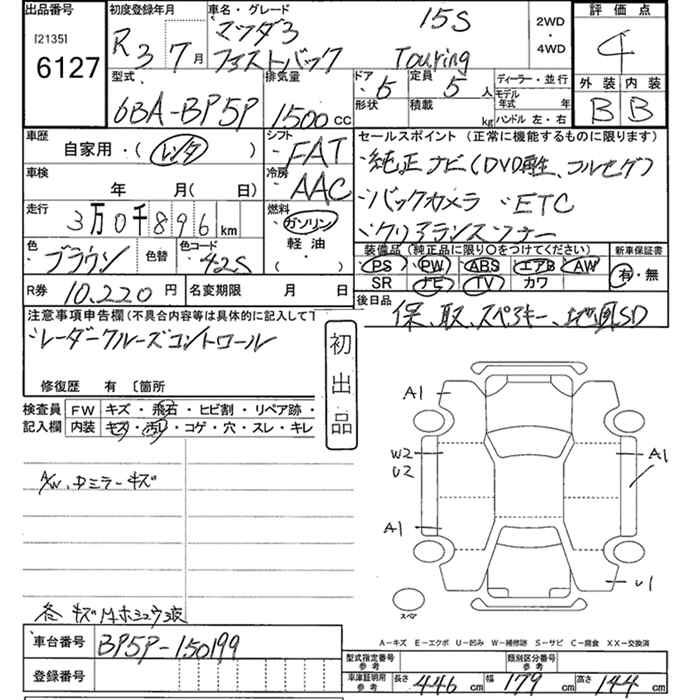 出品番号 初度登録年月 車名・グレード 評価点
[2135] R3 7月 マツダ3 15S 2WD 4
6127 ファストバック Touring ・4WD
型式 排気量 ドア・5 定員5人 ディーラー・並行 外装 内装
6BA-BP5P 1500cc 形状 積載 kg モデル年式 年 ハンドル 左・右 B B
車歴 シフト セールスポイント (正常に機能するものに限ります)
自家用・(レンタ) ・FAT ・純正ナビ(DVD再生、フルセグ)
車検 年 月(日) 冷房 ・AAC ・バックカメラ ・ETC
走行 3万0千896km 燃料 ガソリン ・クリアランスソナー
軽油 装備品 (純正品に限り○をつけてください) 新車保証書
色 ブラウン 色替 色コード 42S ・( ) PS PW ABS エアB AW 有・無
SR ナビ TV カワ
R券 10.220円 名変期限 月 日 後日品 保、取、スペアキー、地図SD
注意事項申告欄(不具合内容等は具体的に記入して下
・レーダークルーズコントロール
初出品
修復歴 有 〔箇所
検査員 FW キズ・飛石・ヒビ割・リペア跡・
記入欄 内装 キズ・汚レ・コゲ・穴・スレ・キレ
A1
W2 A1
U2
A/W、Dミラーキズ
A1
U1
スペア
各キズ
A-キズ E-エクボ U-凹み W-補修跡 S-サビ C-腐食 XX-交換済
車台番号 BP5P-150199
型式指定番号 参考 類別区分番号 参考
登録番号 車庫証明用 参考 長さ 446cm 幅 179cm 高さ 144cm